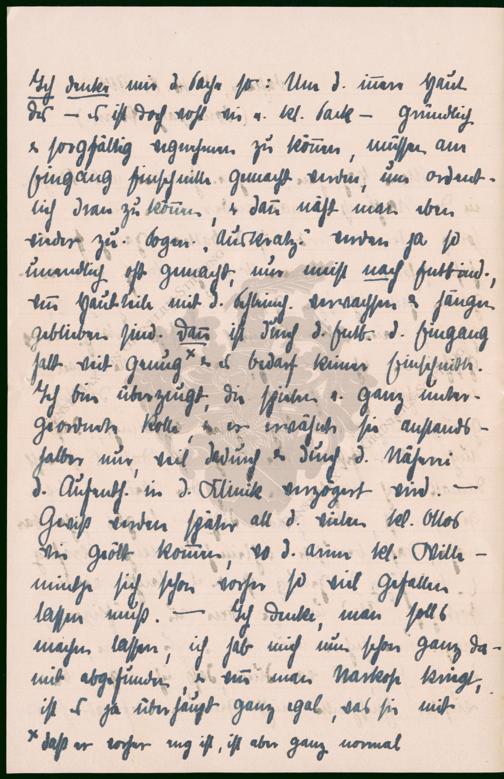 Ich denke mir d. Sache so: Um d. innere Haut
des — es ist doch wohl wie e. kl. Sack — gründlich
& sorgfältig wegnehmen zu können, müssen am
Eingang Einschnitte gemacht werden, um ordent-
lich dran zu können, & dann näht man eben
wieder zu. Sogen. „Auskratz." werden ja so
unendlich oft gemacht, nur meist nach Entbind.,
wenn Hautteile mit d. Schleimh. verwachsen & hängen
geblieben sind. Dann ist durch d. Entb. d. Eingang
halt weit genug x & es bedarf keiner Einschnitte.
Ich bin überzeugt, die spielen e. ganz unter-
geordnete Rolle, & er erwähnte sie anstands-
halber nur, weil dadurch & durch d. Näherei
d. Aufenth. in d. Klinik verzögert wird. —
Gewiß werden später all d. vielen kl. Ottos
wie geölt kommen, wo d. arme kl. Wille-
minchje sich schon vorher so viel gefallen
lassen muß. — Ich denke, man solls
machen lassen, ich hab mich nun schon ganz da-
mit abgefunden, & wenn man Narkose kriegt,
ist es ja überhaupt ganz egal, was sie mit
x daß er vorher eng ist, ist aber ganz normal